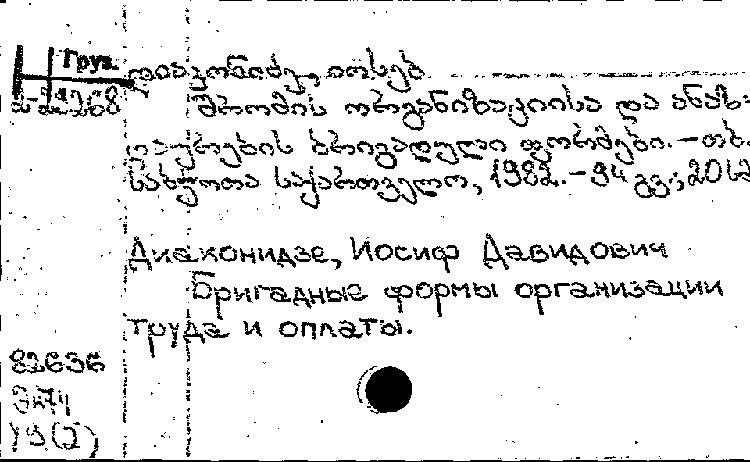 Груз.
დიაკონიძე, იოსებ
შრომის ორგანიზაციისა და ანაზ-
ღაურების ბრიგადული ფორმები. – თბ.
საბჭოთა საქართველო, 1982. – 94 გვ.; 20
Диаконидзе, Иосиф Давидович
Бригадные формы организации
труда и оплаты.
82636